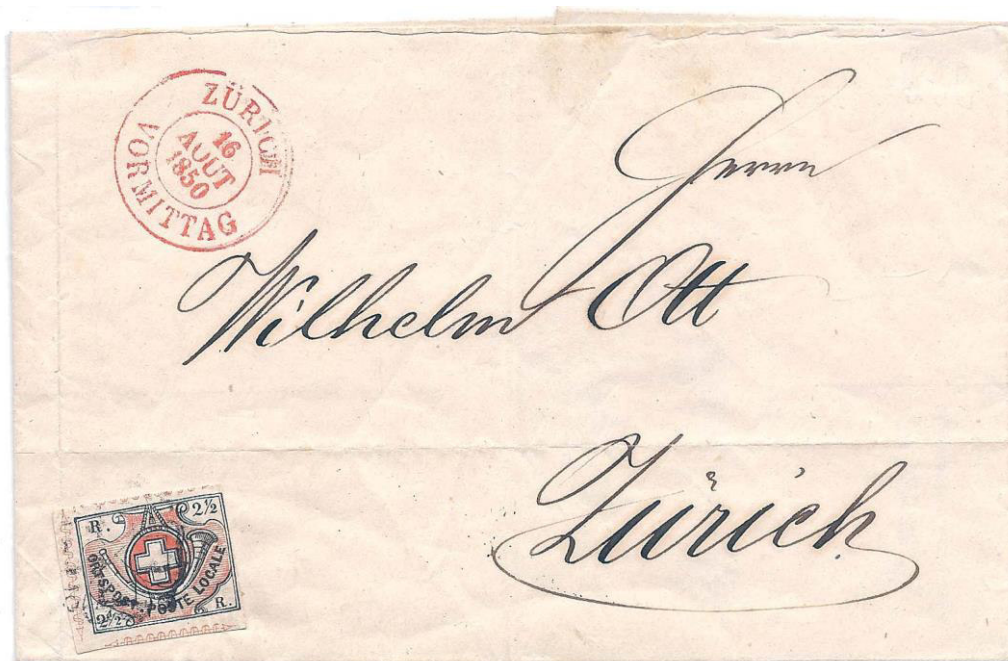 ZÜRICH
16
AOUT
1850
VORMITTAG
Herrn
Wilhelm Ott
Zürich
R. 2½
ORTSPOST. POSTE LOCALE
2½ R.